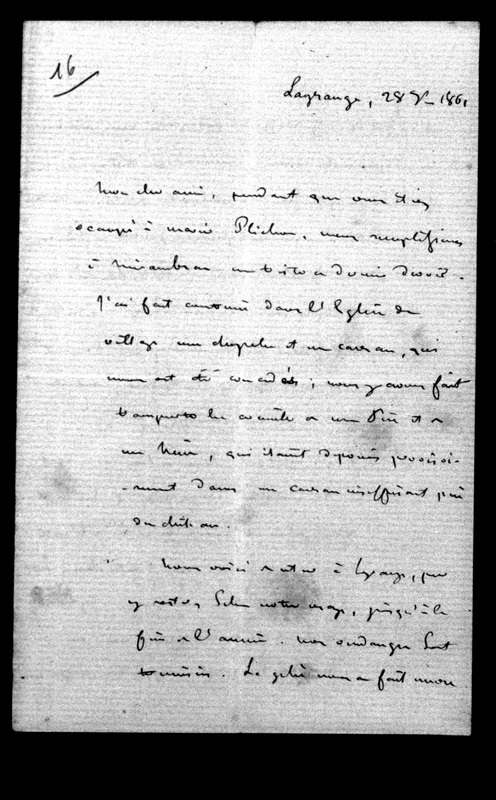 16
Lagrange, 28 8bre 1861
Mon cher ami, pendant que vous étiez
occupé à marier Plichon, nous remplissions
à Mirambeau un triste et dernier devoir.
J'ai fait construire dans l'Eglise du
village une chapelle et un caveau, qui
nous ont été concédés ; nous y avons fait
transporter les cercueils de mon Père et de
ma Mère, qui étaient déposés provisoi-
-rement dans un caveau insuffisant près
du château.
Nous voici rentrés à Lagrange, pour
y rester, selon notre usage, jusqu'à la
fin de l'année. nos vendanges sont
terminées. La gelée nous a fait moins